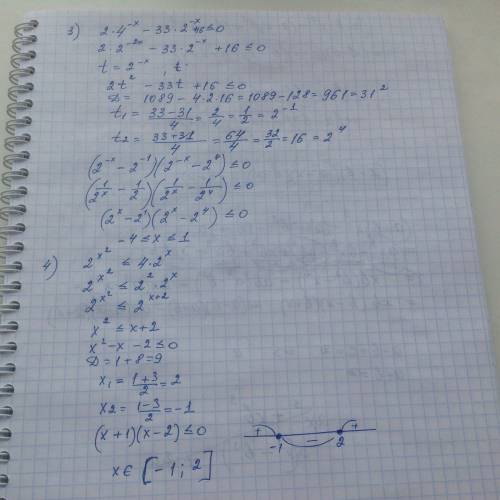 3) 2·4^-x − 33·2^-x +16 ≤ 0
2·2^-2x − 33·2^-x + 16 ≤ 0
t = 2^-x , t
2t^2 − 33t + 16 ≤ 0
D = 1089 − 4·2·16 = 1089 − 128 = 961 = 31^2
t1 = (33−31)/4 = 2/4 = 1/2 = 2^-1
t2 = (33+31)/4 = 64/4 = 32/2 = 16 = 2^4
(2^-x − 2^-1)(2^-x − 2^4) ≤ 0
(1/2^x − 1/2)(1/2^x − 1/2^4) ≤ 0
(2^x − 2^1)(2^x − 2^4) ≤ 0
−4 ≤ x ≤ 1
4) 2^x^2 ≤ 4·2^x
2^x^2 ≤ 2^2·2^x
2^x^2 ≤ 2^x+2
x^2 ≤ x+2
x^2 − x − 2 ≤ 0
D = 1+8 = 9
x1 = (1+3)/2 = 2
x2 = (1−3)/2 = −1
(x+1)(x−2) ≤ 0
+ − +
−1 2
x ∈ [−1; 2]